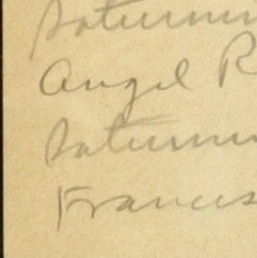 Saturnin
Angel R
Saturnin
Francis